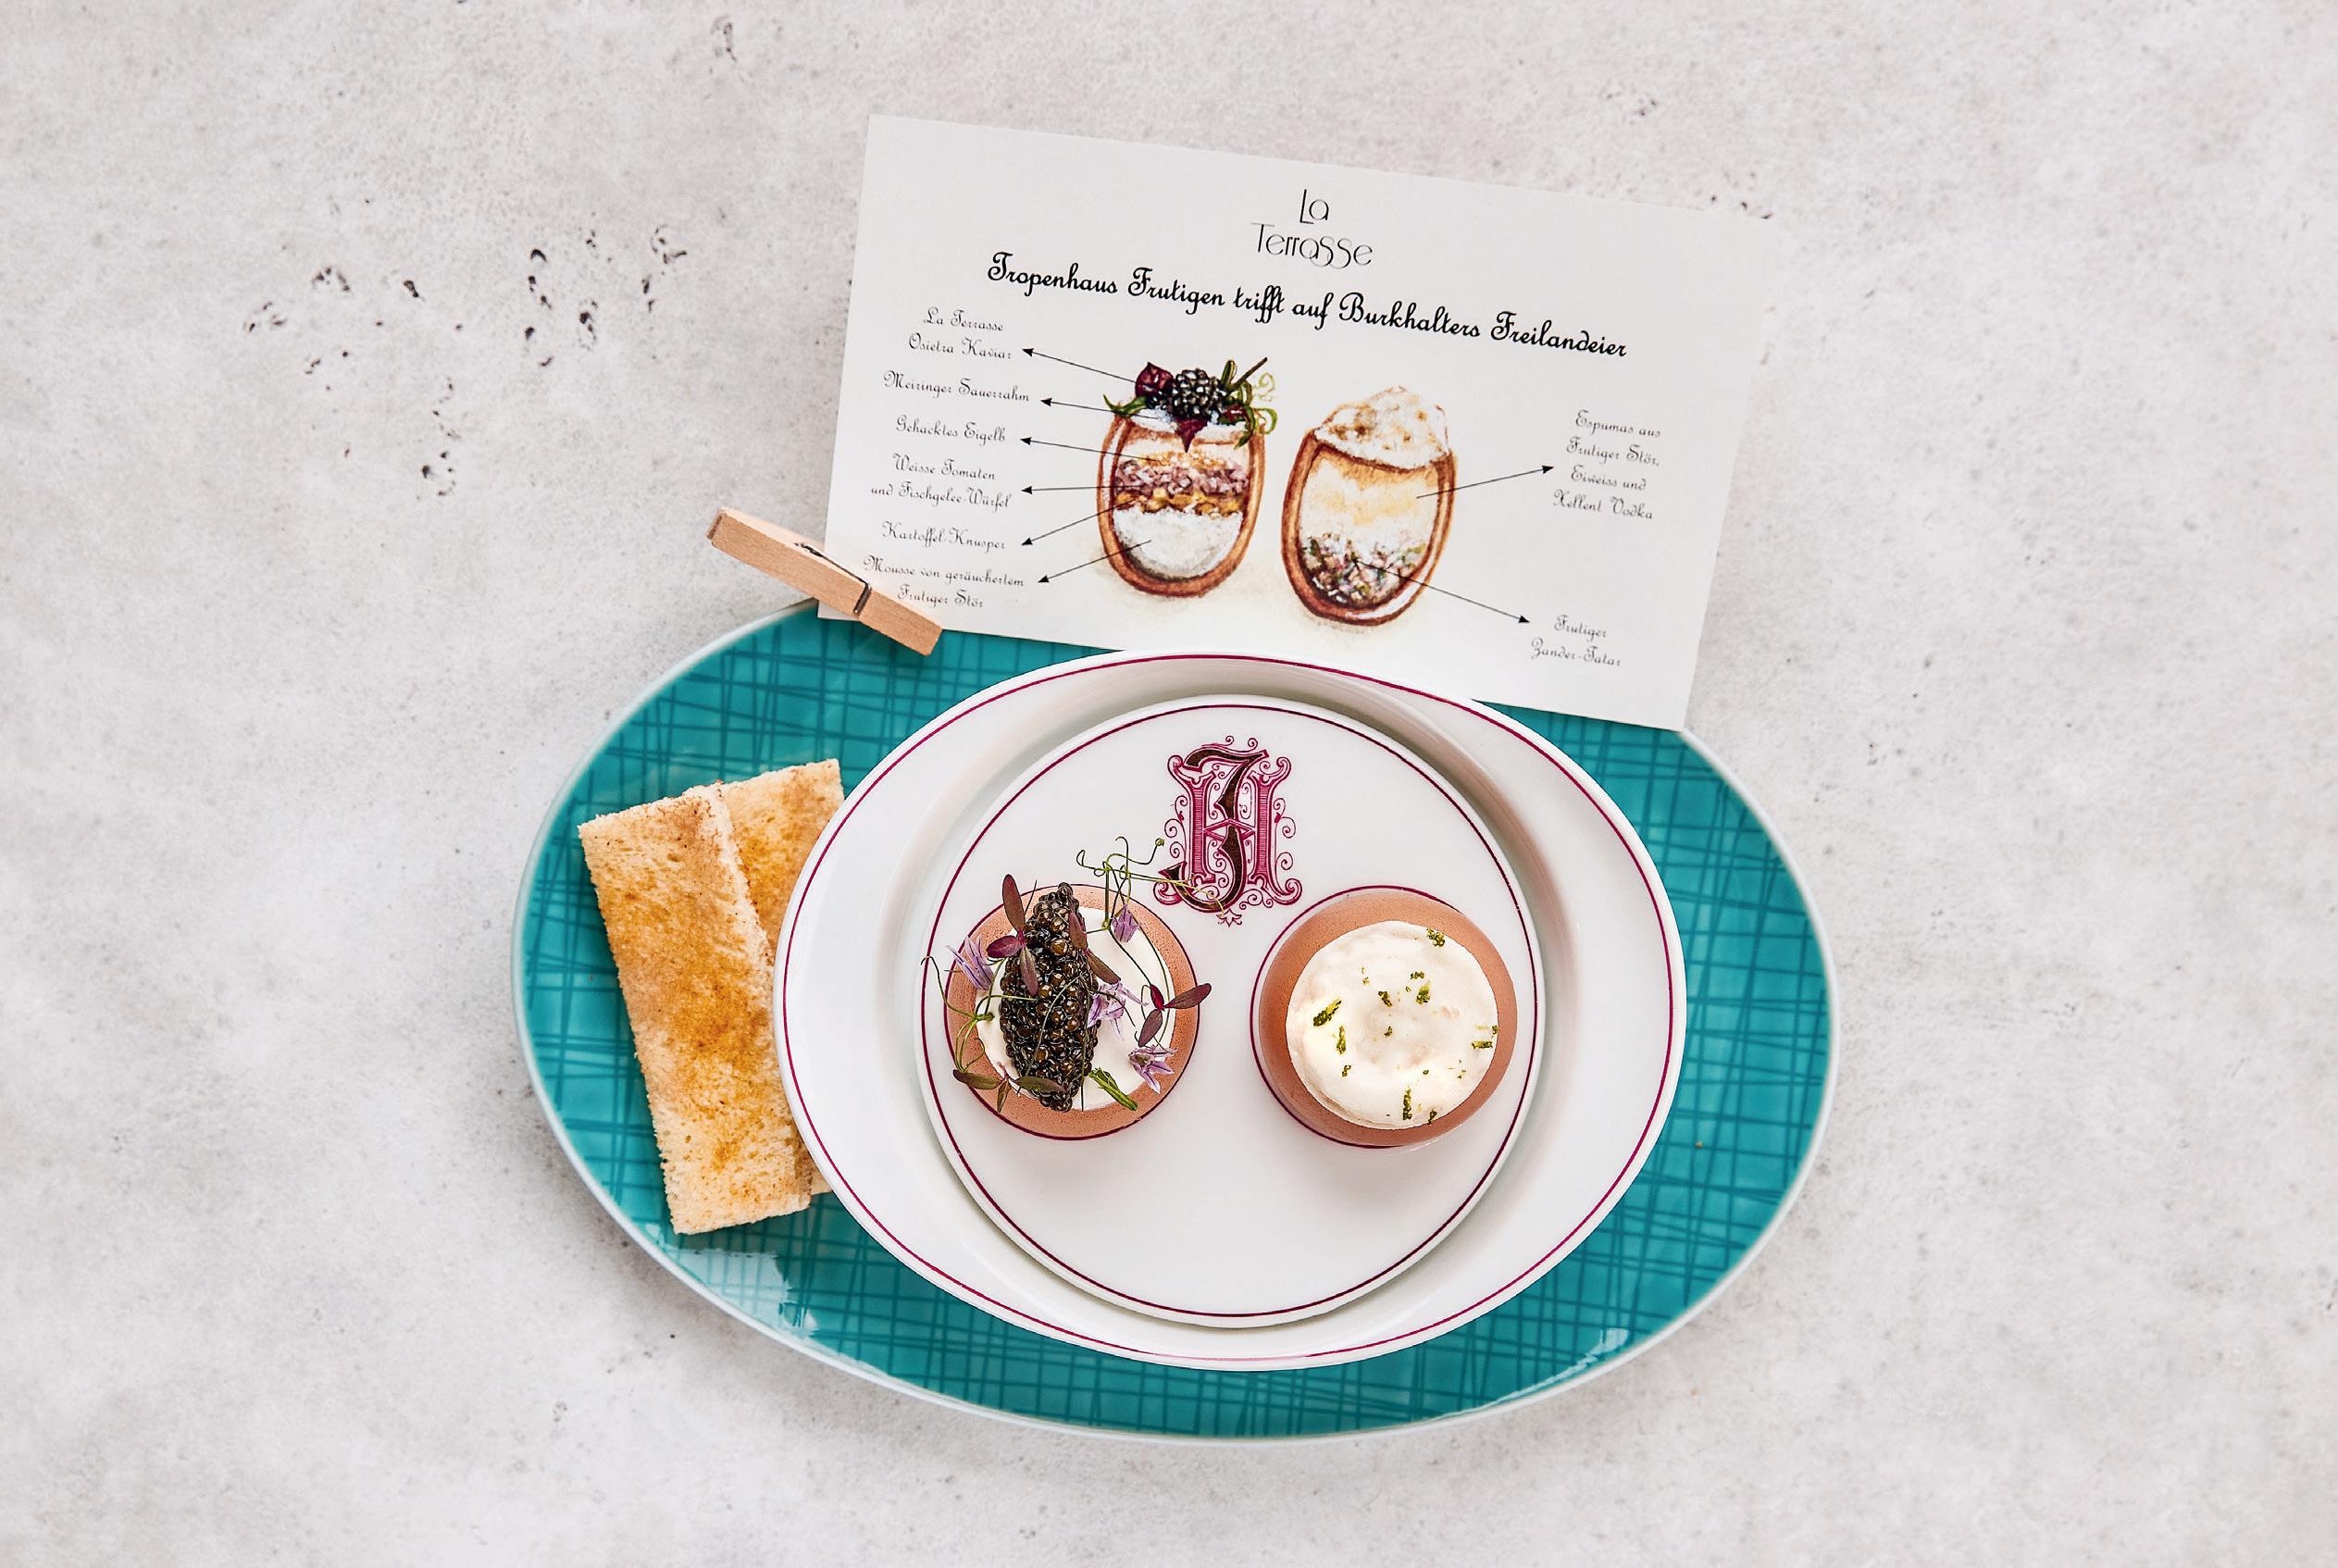 La
Terrasse
Tropenhaus Frutigen trifft auf Burkhalters Freilandeier
La Terrasse
Osietra Kaviar
Meiringer Sauerrahm
Gehacktes Eigelb
Weisse Tomaten
und Fischgelee-Würfel
Kartoffel-Knusper
Mousse von geräuchertem
Frutiger Stör
Espumas aus
Frutiger Stör,
Eiweiss und
Xellent Vodka
Frutiger
Zander-Tatar